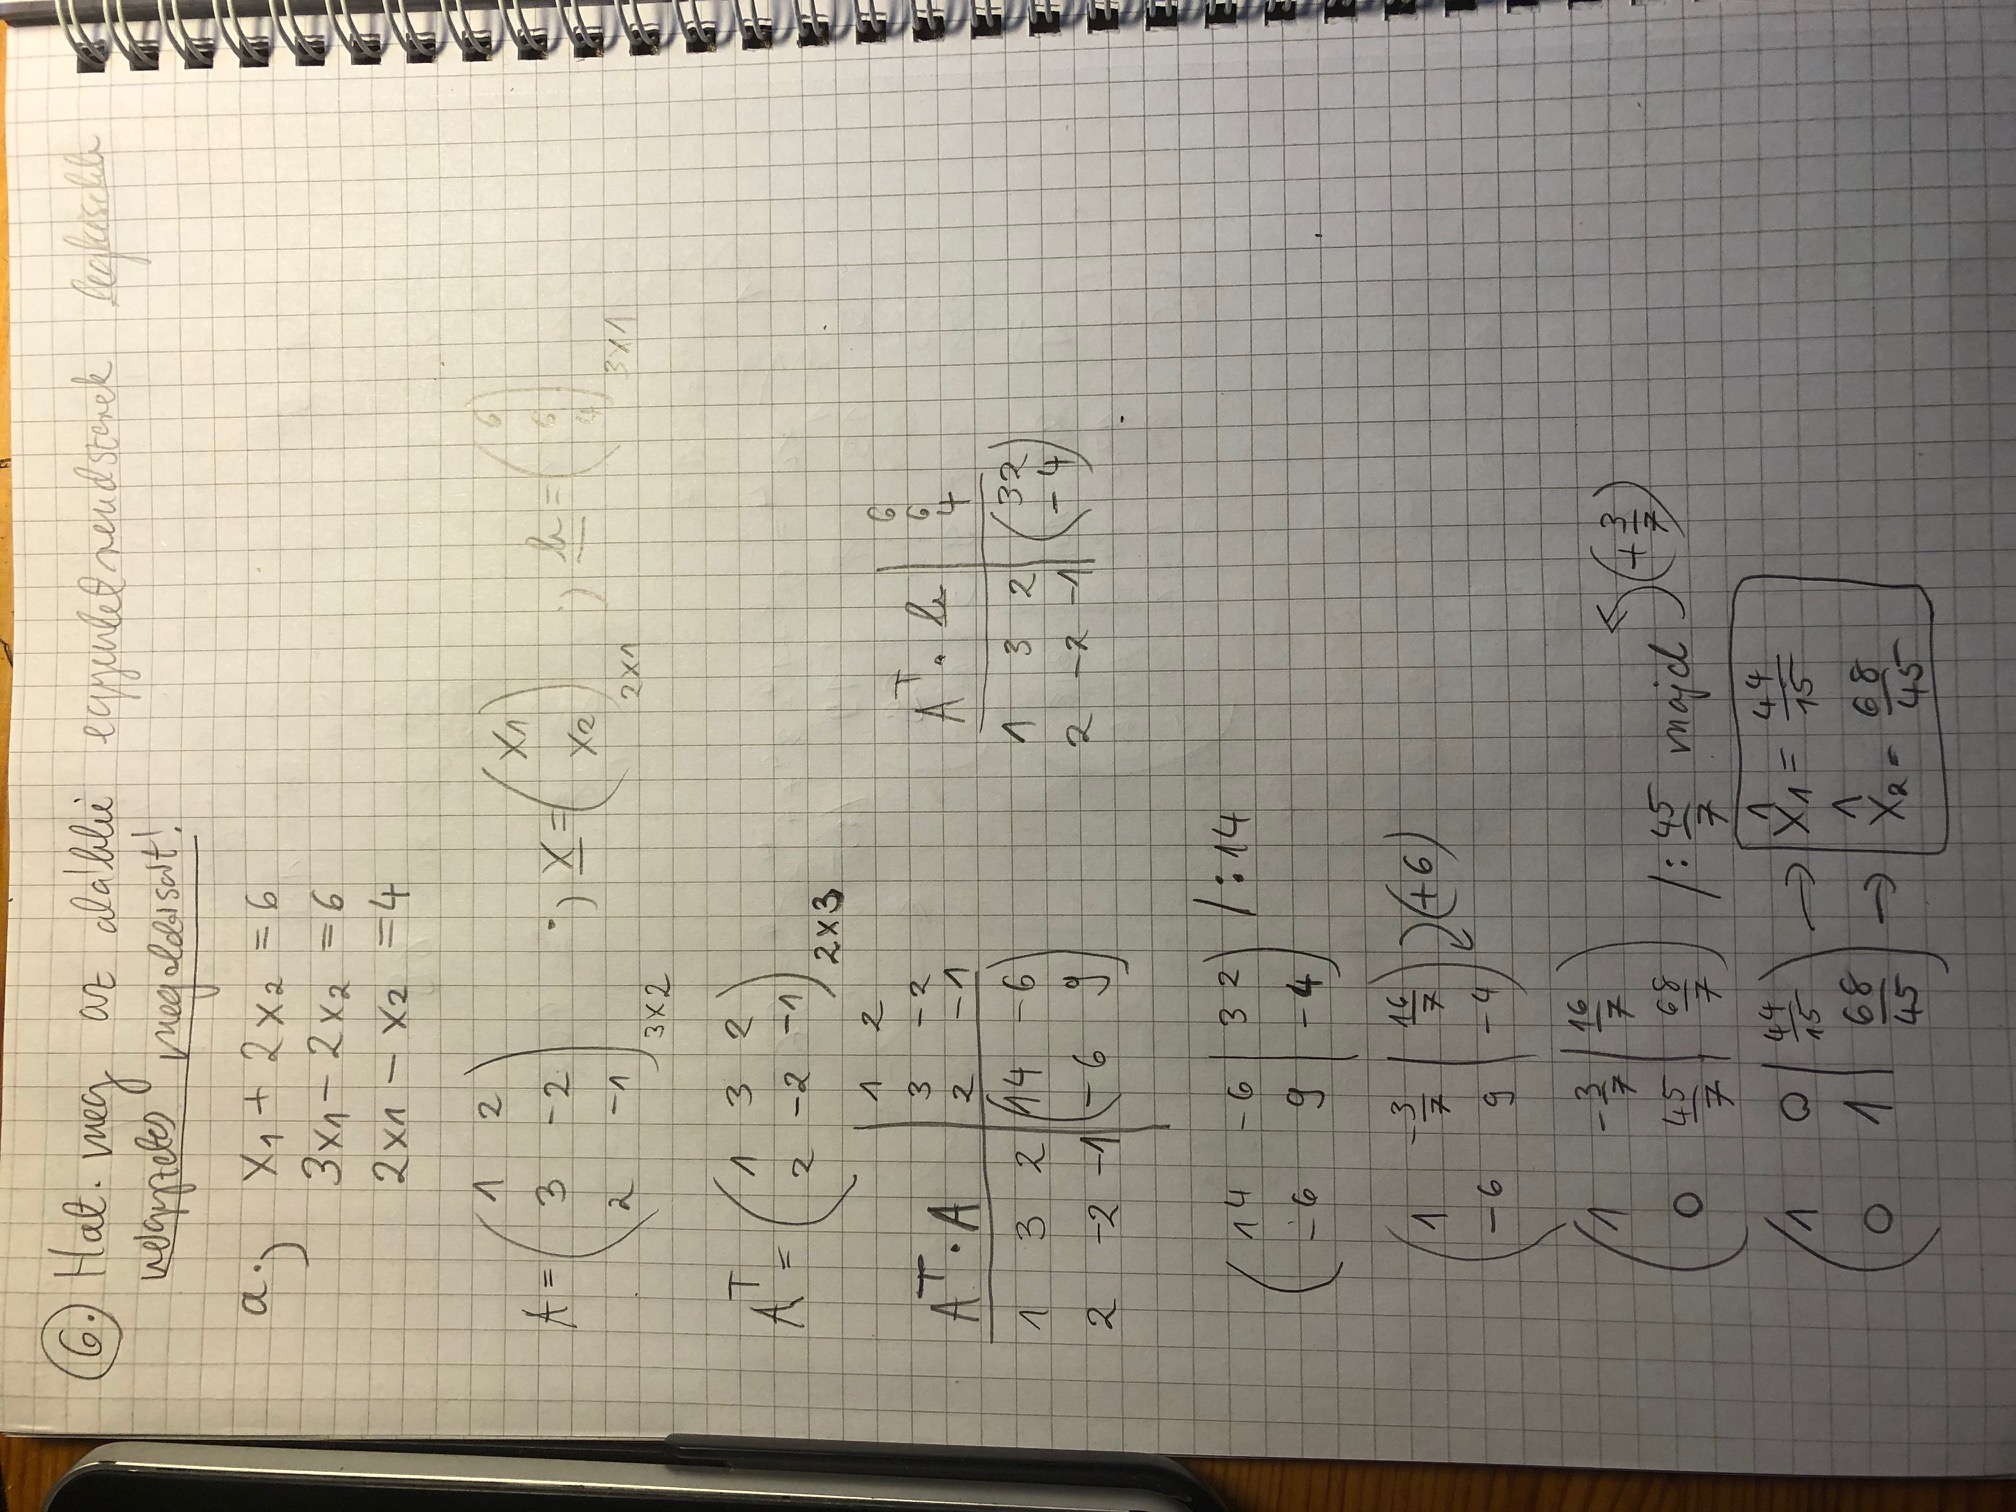 6. Hat. meg az alábbi egyenletrendszerek legkisebb
négyzetes megoldásait!
a.) x₁ + 2x₂ = 6
3x₁ - 2x₂ = 6
2x₁ - x₂ = 4
A = (1 2; 3 -2; 2 -1) 3x2 ; x = (x₁; x₂) 2x1 ; b = (6; 6; 4) 3x1
Aᵀ = (1 3 2; 2 -2 -1) 2x3
1 2
3 -2
Aᵀ · A | 2 -1
1 3 2 | (14 -6
2 -2 -1 | -6 9)
6
6
Aᵀ · b | 4
1 3 2 | (32
2 -2 -1 | -4)
(14 -6 | 32) /:14
(-6 9 | -4)
(1 -3/7 | 16/7)
(-6 9 | -4) (+6)
(1 -3/7 | 16/7)
(0 45/7 | 68/7) /: 45/7 majd (+3/7)
(1 0 | 44/15) → x̂₁ = 44/15
(0 1 | 68/45) → x̂₂ = 68/45